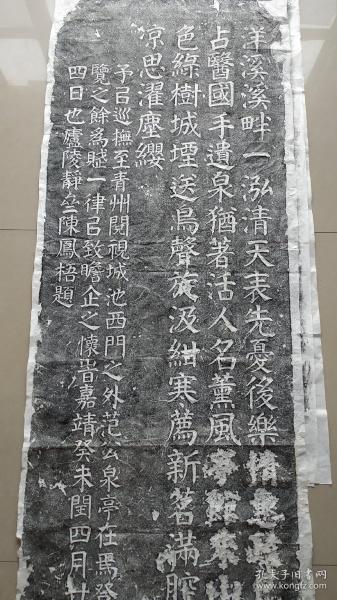 洋溪溪畔一泓清天表先憂後樂情
占醫國手遺泉猶著活人名薰風
色綠樹城堙送鳥聲旋汲紺寒薦新茗滿腔
凉思濯塵纓
予㠯巡撫至青州閱視城池西門之外范公泉亭在焉登
覽之餘為賦一律㠯致瞻企之懷旹嘉靖癸未閏四月廿
四日也廬陵靜齋陳鳳梧題
孔夫子旧书网